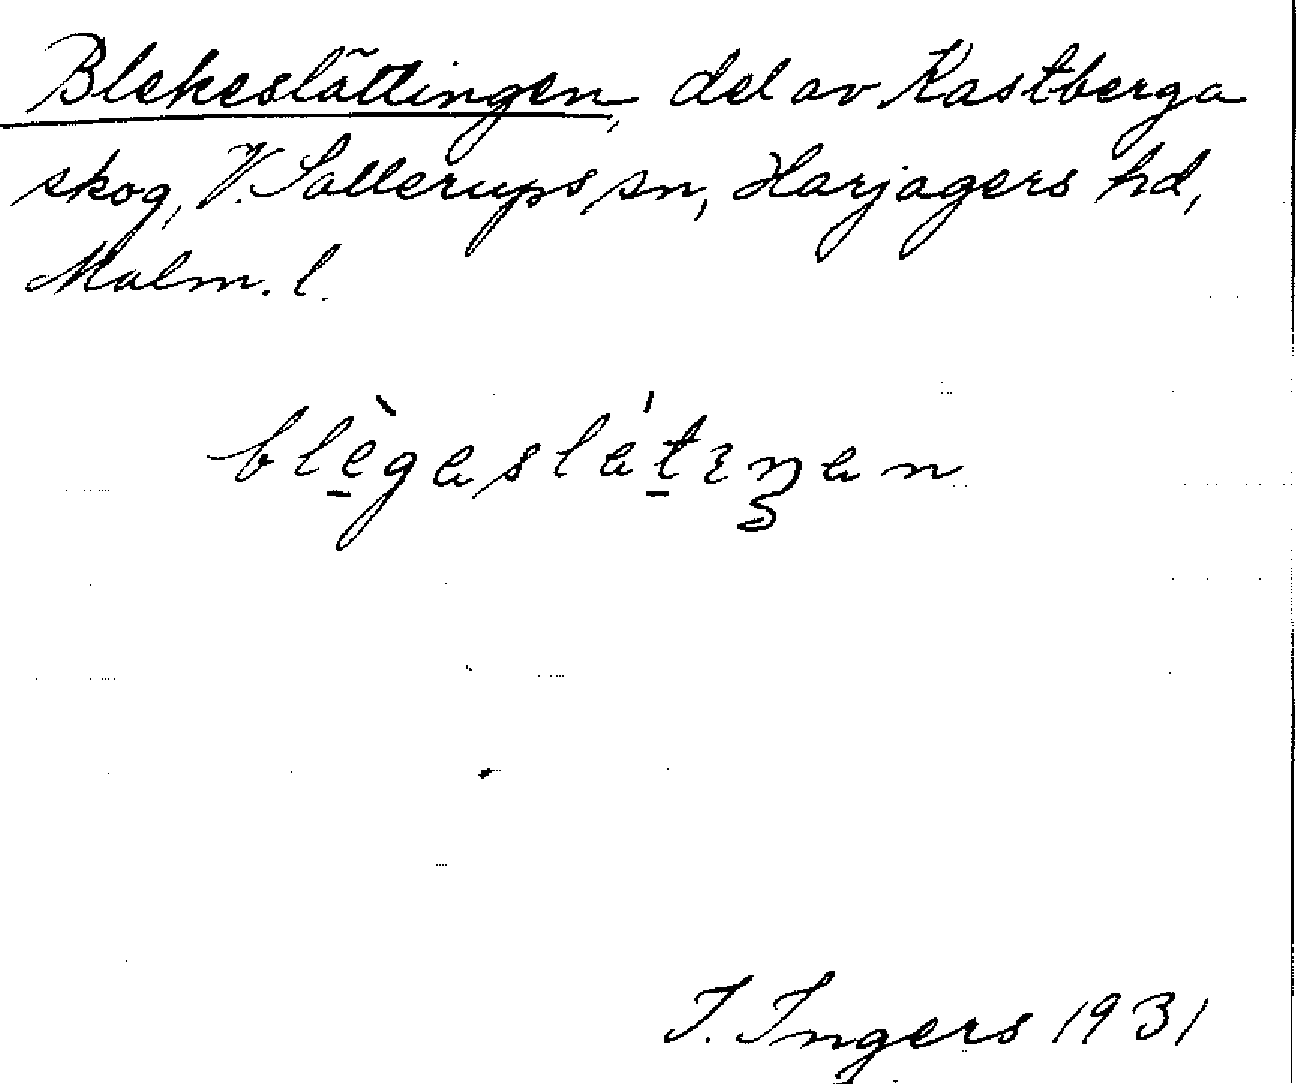 Blekeslättingen, del av Kastberga
skog, V. Sallerups sn, Harjagers hd,
Malm. l.
blègaslátıŋan
I. Ingers 1931